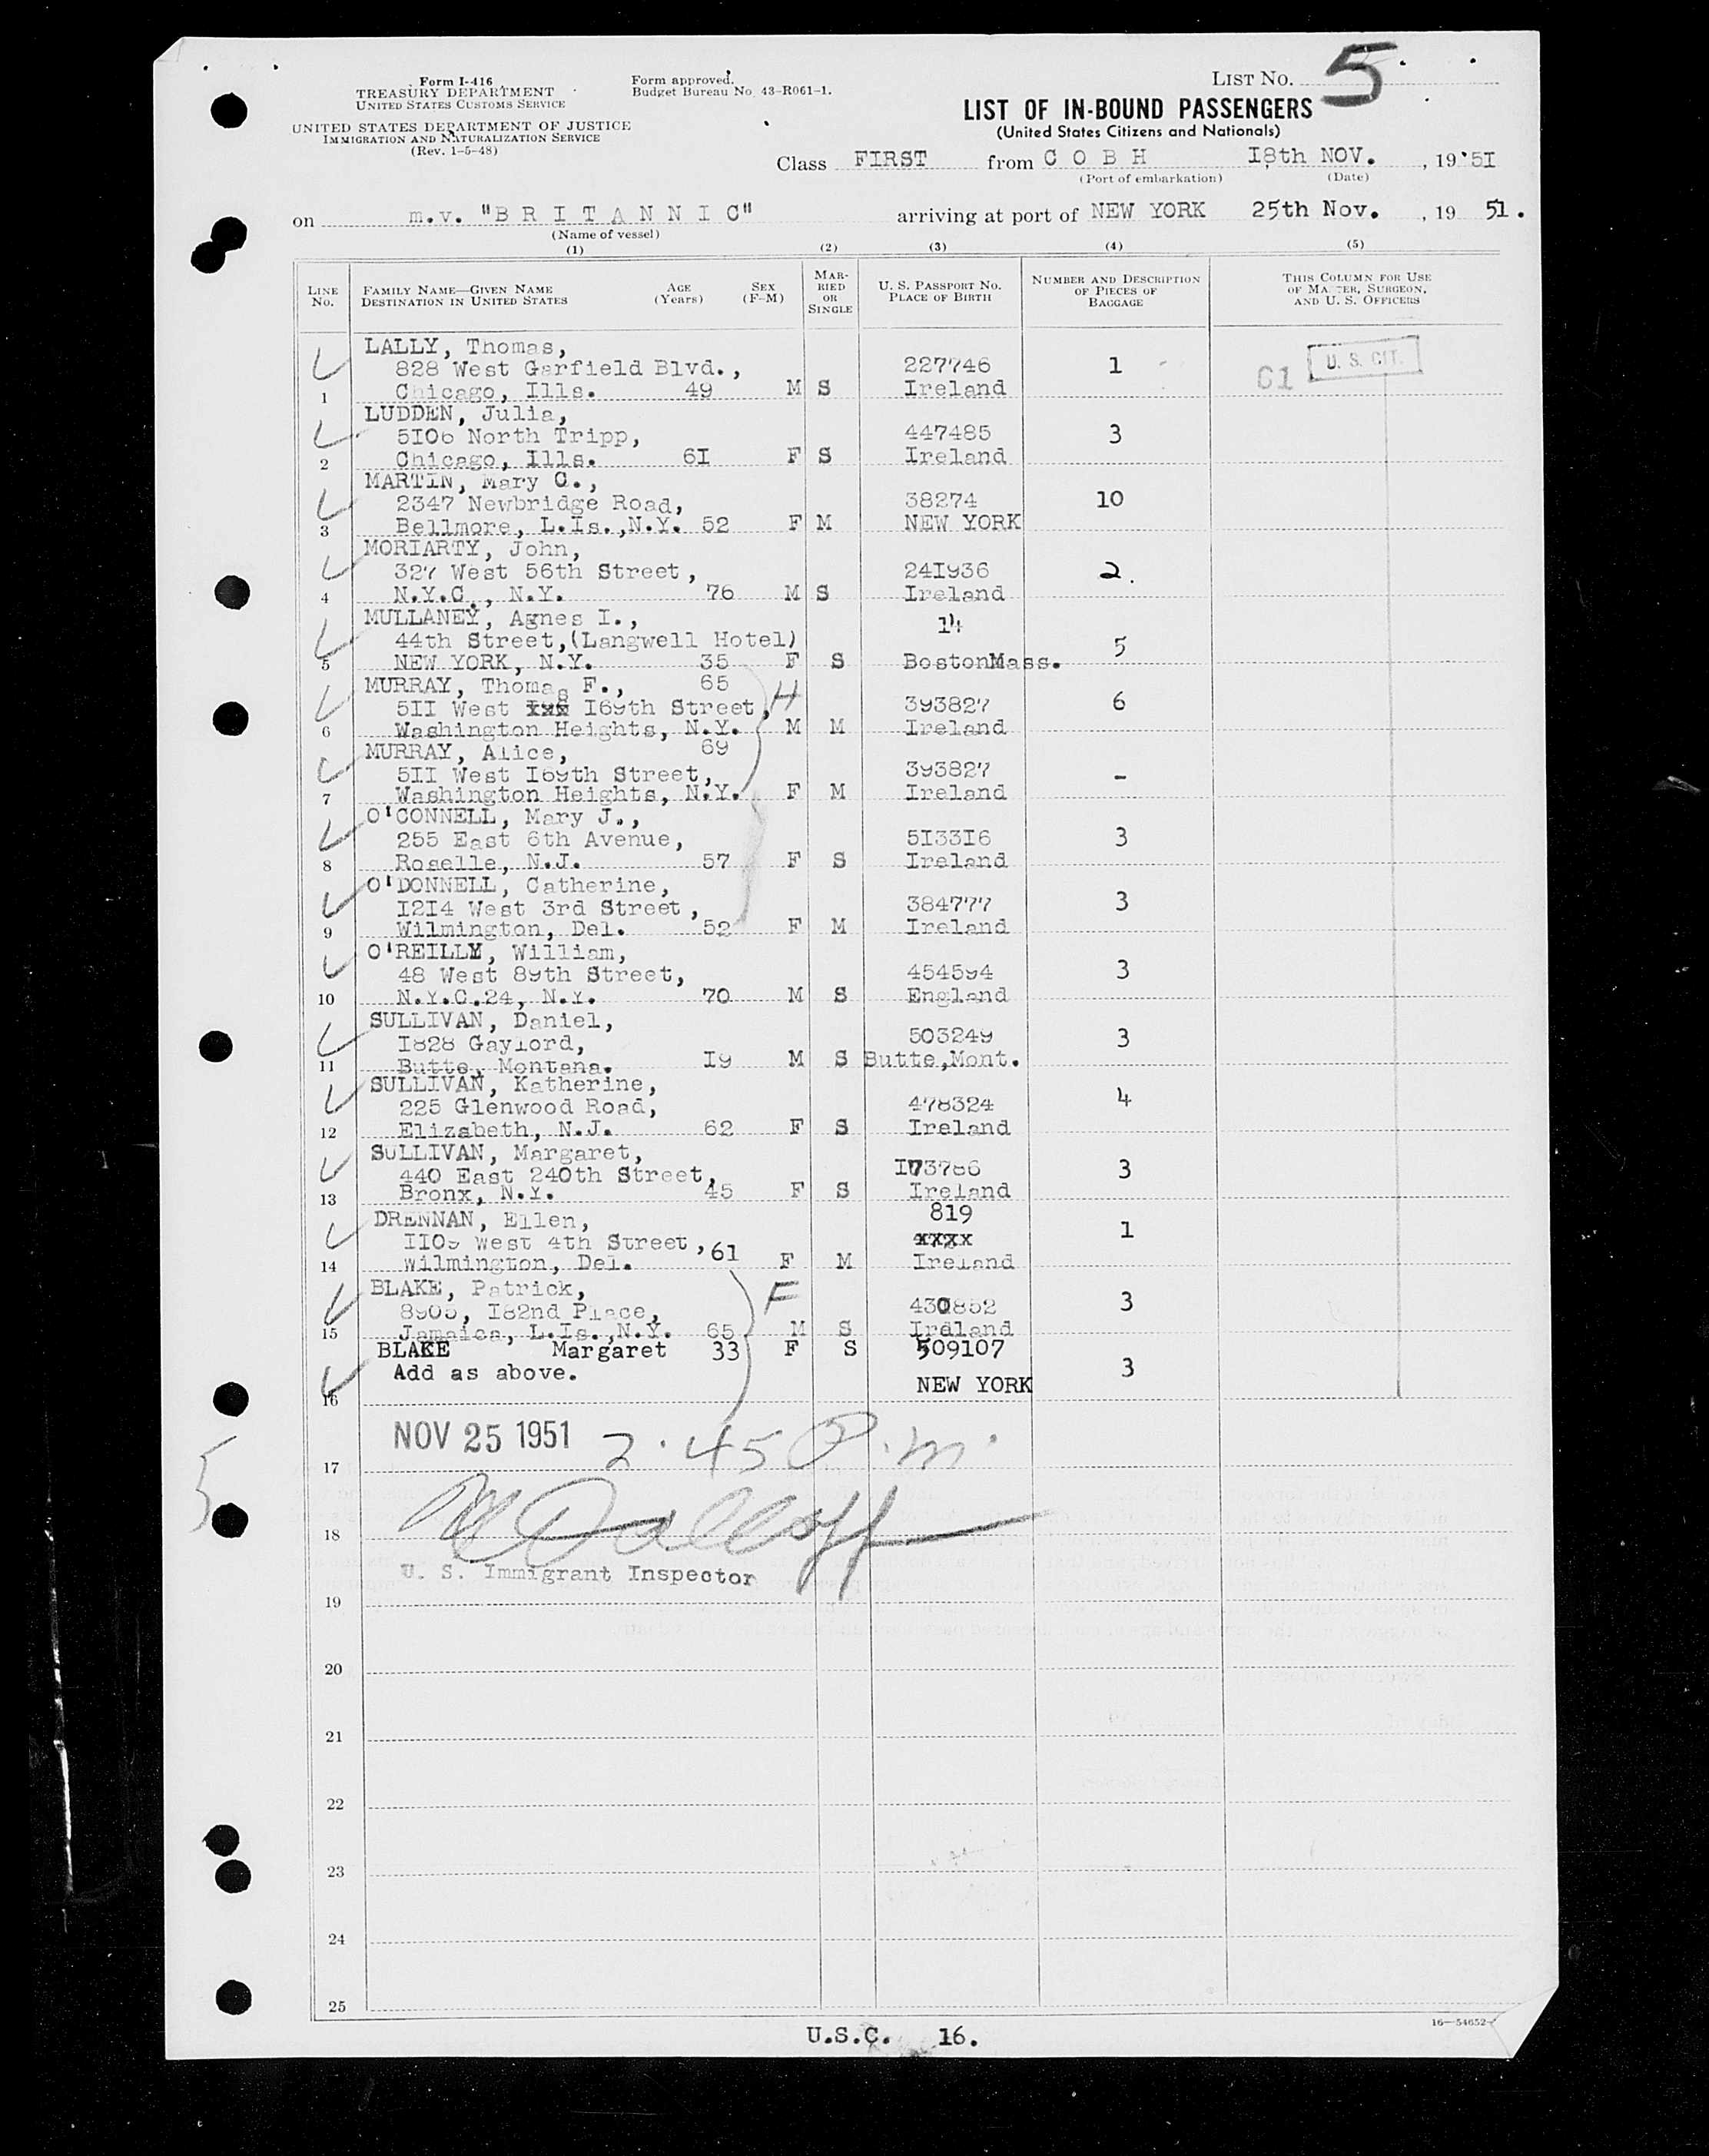 Form I-416
TREASURY DEPARTMENT
UNITED STATES CUSTOMS SERVICE
UNITED STATES DEPARTMENT OF JUSTICE
IMMIGRATION AND NATURALIZATION SERVICE
(Rev. 1-5-48)
Form approved.
Budget Bureau No. 43-R061-1.
LIST NO. 5
LIST OF IN-BOUND PASSENGERS
(United States Citizens and Nationals)
Class FIRST from C O B H I8th NOV. , 19'5I
(Port of embarkation) (Date)
on m.v. "B R I T A N N I C" arriving at port of NEW YORK 25th Nov. , 19 51.
(Name of vessel)
(1) (2) (3) (4) (5)
LINE No. FAMILY NAME—GIVEN NAME DESTINATION IN UNITED STATES AGE (Years) SEX (F-M) MARRIED OR SINGLE U. S. PASSPORT NO. PLACE OF BIRTH NUMBER AND DESCRIPTION OF PIECES OF BAGGAGE THIS COLUMN FOR USE OF MASTER, SURGEON, AND U. S. OFFICERS
LALLY, Thomas,
828 West Garfield Blvd., 227746 1 61 U. S. CIT.
1 Chicago, Ills. 49 M S Ireland
LUDDEN, Julia,
5I06 North Tripp, 447485 3
2 Chicago, Ills. 6I F S Ireland
MARTIN, Mary C.,
2347 Newbridge Road, 38274 10
3 Bellmore, L.Is.,N.Y. 52 F M NEW YORK
MORIARTY, John,
327 West 56th Street, 24I936 2.
4 N.Y.C., N.Y. 76 M S Ireland
MULLANEY, Agnes I., 14
44th Street,(Langwell Hotel) 5
5 NEW YORK, N.Y. 35 F S BostonMass.
MURRAY, Thomas F., 65 H
5II West xxx I69th Street, 393827 6
6 Washington Heights, N.Y. M M Ireland
MURRAY, Alice, 69
5II West I69th Street, 393827 -
7 Washington Heights, N.Y. F M Ireland
O'CONNELL, Mary J.,
255 East 6th Avenue, 5I33I6 3
8 Roselle, N.J. 57 F S Ireland
O'DONNELL, Catherine,
I2I4 West 3rd Street, 384777 3
9 Wilmington, Del. 52 F M Ireland
O'REILLY, William,
48 West 89th Street, 454594 3
10 N.Y.C.24, N.Y. 70 M S England
SULLIVAN, Daniel,
I828 Gaylord, 503249 3
11 Butte, Montana. I9 M S Butte,Mont.
SULLIVAN, Katherine,
225 Glenwood Road, 478324 4
12 Elizabeth, N.J. 62 F S Ireland
SULLIVAN, Margaret,
440 East 240th Street, I73786 3
13 Bronx, N.Y. 45 F S Ireland
DRENNAN, Ellen, 819
II09 West 4th Street, 61 xxxx 1
14 Wilmington, Del. F M Ireland
BLAKE, Patrick, F
8905, I82nd Place, 430852 3
15 Jamaica, L.Is.,N.Y. 65 M S Ireland
BLAKE Margaret 33 F S 509107
Add as above. 3
16 NEW YORK
NOV 25 1951 2.45 P.m.
17
18
U. S. Immigrant Inspector
19
20
21
22
23
24
25
16—54652-1
U.S.C. 16.
5